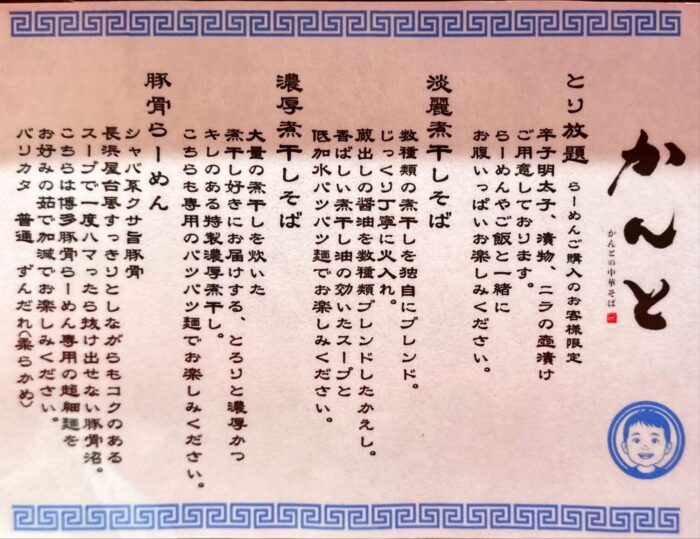 かんと
かんとの中華そば
とり放題 らーめんご購入のお客様限定
辛子明太子、漬物、ニラの壺漬け
ご用意しております。
らーめんやご飯と一緒に
お腹いっぱいお楽しみください。
淡麗煮干しそば
数種類の煮干しを独自にブレンド。
じっくり丁寧に火入れ。
蔵出しの醤油を数種類ブレンドしたかえし。
香ばしい煮干し油の効いたスープと
低加水パツパツ麺でお楽しみください。
濃厚煮干しそば
大量の煮干しを炊いた
煮干し好きにお届けする、とろりと濃厚かつ
キレのある特製濃厚煮干し。
こちらも専用のパツパツ麺でお楽しみください。
豚骨らーめん
シャバ系クサ旨豚骨
長浜屋台風すっきりとしながらもコクのある
スープで一度ハマったら抜け出せない豚骨沼。
こちらは博多豚骨らーめん専用の超細麺を
お好みの茹で加減でお楽しみください。
バリカタ 普通 ずんだれ(柔らかめ)